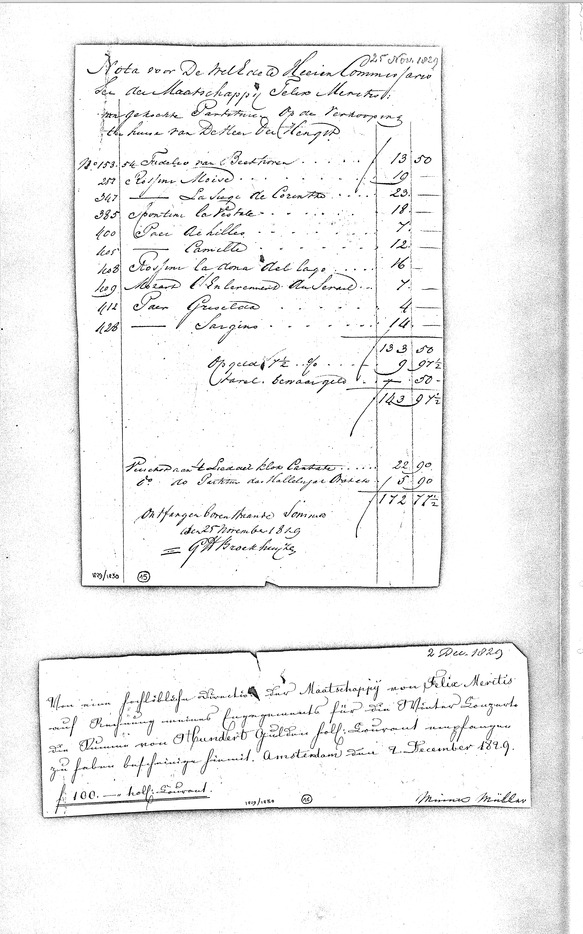 25 Nov. 1829
Nota voor De WelEdele Heeren Commissaris
der Maatschappij Felix Meritis
gekochte Partituren Op de Verkooping
ten huise van De Heer Den Hengst
No 153. 54 Fidelio van Beethoven . . . . . 13 50
257 Rossini Moise . . . . . . 19 —
347 —— La Siege de Corinthe . . . 23 —
385 Spontini la Vestale . . . . . . 18 —
400 Paer Achilles . . . . . . 7 —
405 —— Camille . . . . . . 12 —
408 Rossini la dona del lago . . . 16 —
409 Mozart l'Enlevement du Serail . . 7 —
412 Paer Griselda . . . . . . 4 —
428 —— Sargino . . . . . . 14 —
133 50
Opgeld 7½ % 9 97½
bewaargeld 50
143 97½
Cantate . . . . . 22 90
do de Partituur das Hallelujah 5 90
172 77½
Ontfangen bovenstaande Somma
den 25 November 1829
= G W Broekhuijze
1829/1830 15
2 Dec. 1829
Von eine Direction der Maatschappij von Felix Meritis
auf Rechnung meines Engagements für die Winter Conzerte
die Summe von Hundert Gulden holl: Courant empfangen
zu haben bescheinige hiemit. Amsterdam den 2. December 1829.
f 100. — holl: Courant.
1829/1830 16
Müller